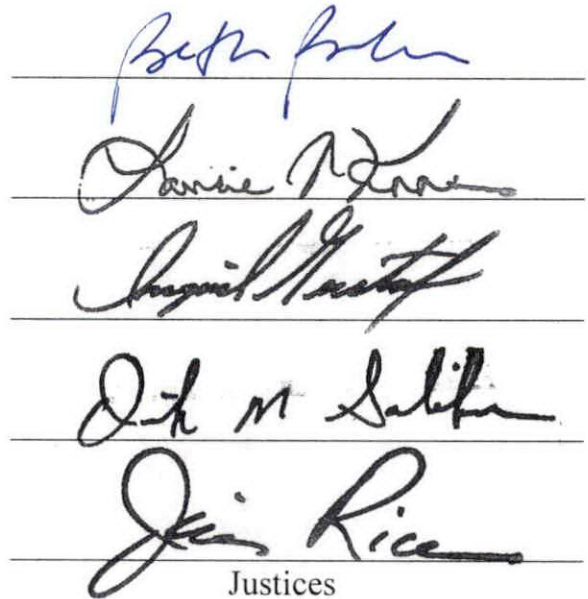 Beth Baker
Laurie McKinnon
Ingrid Gustafson
Dirk M Sandefur
Jim Rice
Justices